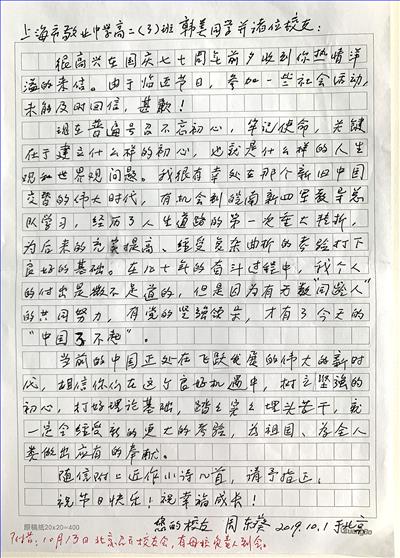 上海市敬业中学高二(3)班 韩美同学并诸位校友:
很高兴在国庆七十周年前夕收到你热情洋
溢的来信。由于临近节日,参加一些社会活动,
未能及时回信,甚歉!
现在普遍号召不忘初心,牢记使命,关键
在于建立什么样的初心,也就是什么样的人生
观和世界观问题。我很有幸处在那个新旧中国
交替的伟大时代,有机会到皖南新四军教导总
队学习,经历了人生道路的第一次重大转折,
为后来的充实提高、经受复杂曲折的考验打下
良好的基础。在几十年的奋斗过程中,我个人
的付出是微不足道的,但是因为有万万“同路人”
的共同努力,有党的坚强领导,才有了今天的
“中国了不起”。
当前的中国正处在飞跃发展的伟大的新时
代,相信你们在这个良好机遇中,树立坚强的
初心,打好理论基础,踏踏实实埋头苦干,就
一定会经受新的更大的考验,为祖国、为全人
类做出应有的奉献。
随信附上近作小诗几首,请予指正。
祝节日快乐!祝幸福成长!
您的校友 周 2019.10.1 于北京
眼稿纸20x20=400
附告:10月13日北京召开校友会,有母校代表人到会。